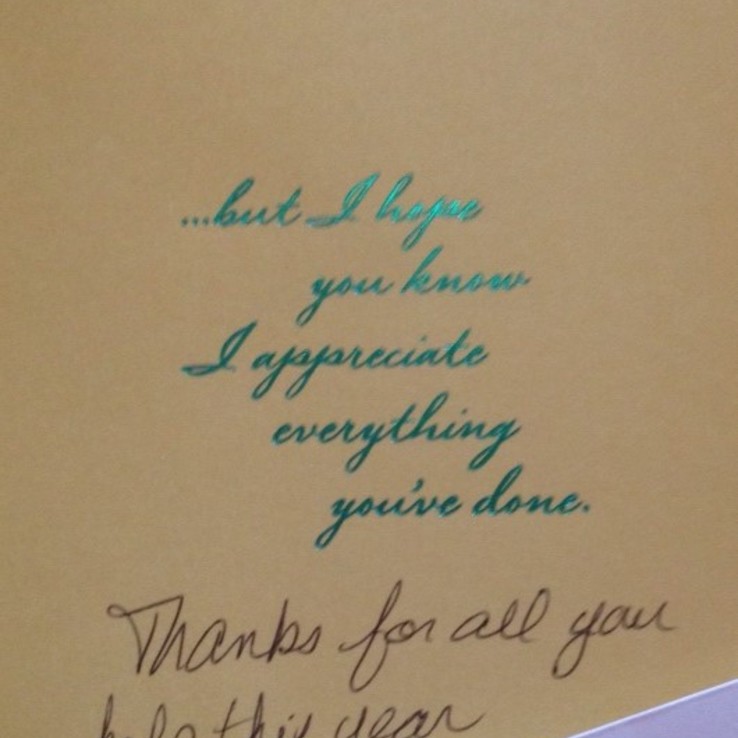 ...but I hope
you know
I appreciate
everything
you've done.
Thanks for all you
help this year